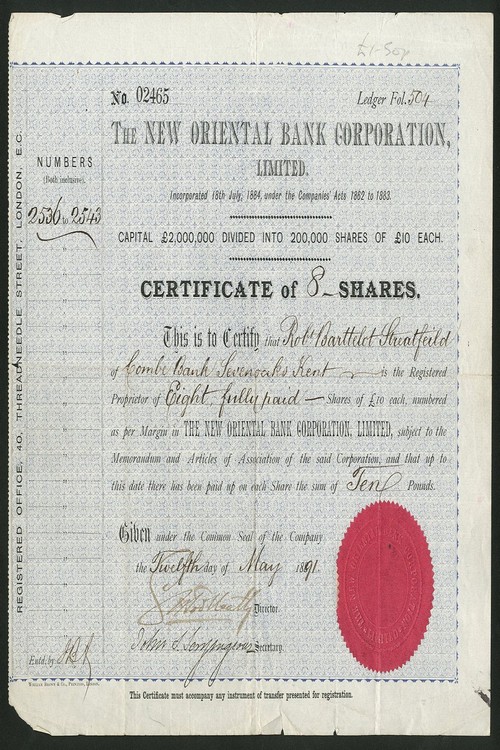 £1-50p
No. 02465 Ledger Fol. 504
THE NEW ORIENTAL BANK CORPORATION,
LIMITED.
Incorporated 18th July, 1884, under the Companies' Acts 1862 to 1883.
CAPITAL £2,000,000 DIVIDED INTO 200,000 SHARES OF £10 EACH.
CERTIFICATE of 8 SHARES.
This is to Certify that Robt Barttelot Streatfeild
of Combe Bank Sevenoaks Kent is the Registered
Proprietor of Eight fully paid Shares of £10 each, numbered
as per Margin in THE NEW ORIENTAL BANK CORPORATION, LIMITED, subject to the
Memorandum and Articles of Association of the said Corporation, and that up to
this date there has been paid up on each Share the sum of Ten Pounds.
Given under the Common Seal of the Company
the Twelfth day of May 1891.
Director.
John S. Secretary.
NUMBERS
(Both inclusive).
2536 to 2543
REGISTERED OFFICE, 40, THREADNEEDLE STREET, LONDON, E.C.
Entd. by
This Certificate must accompany any instrument of transfer presented for registration.